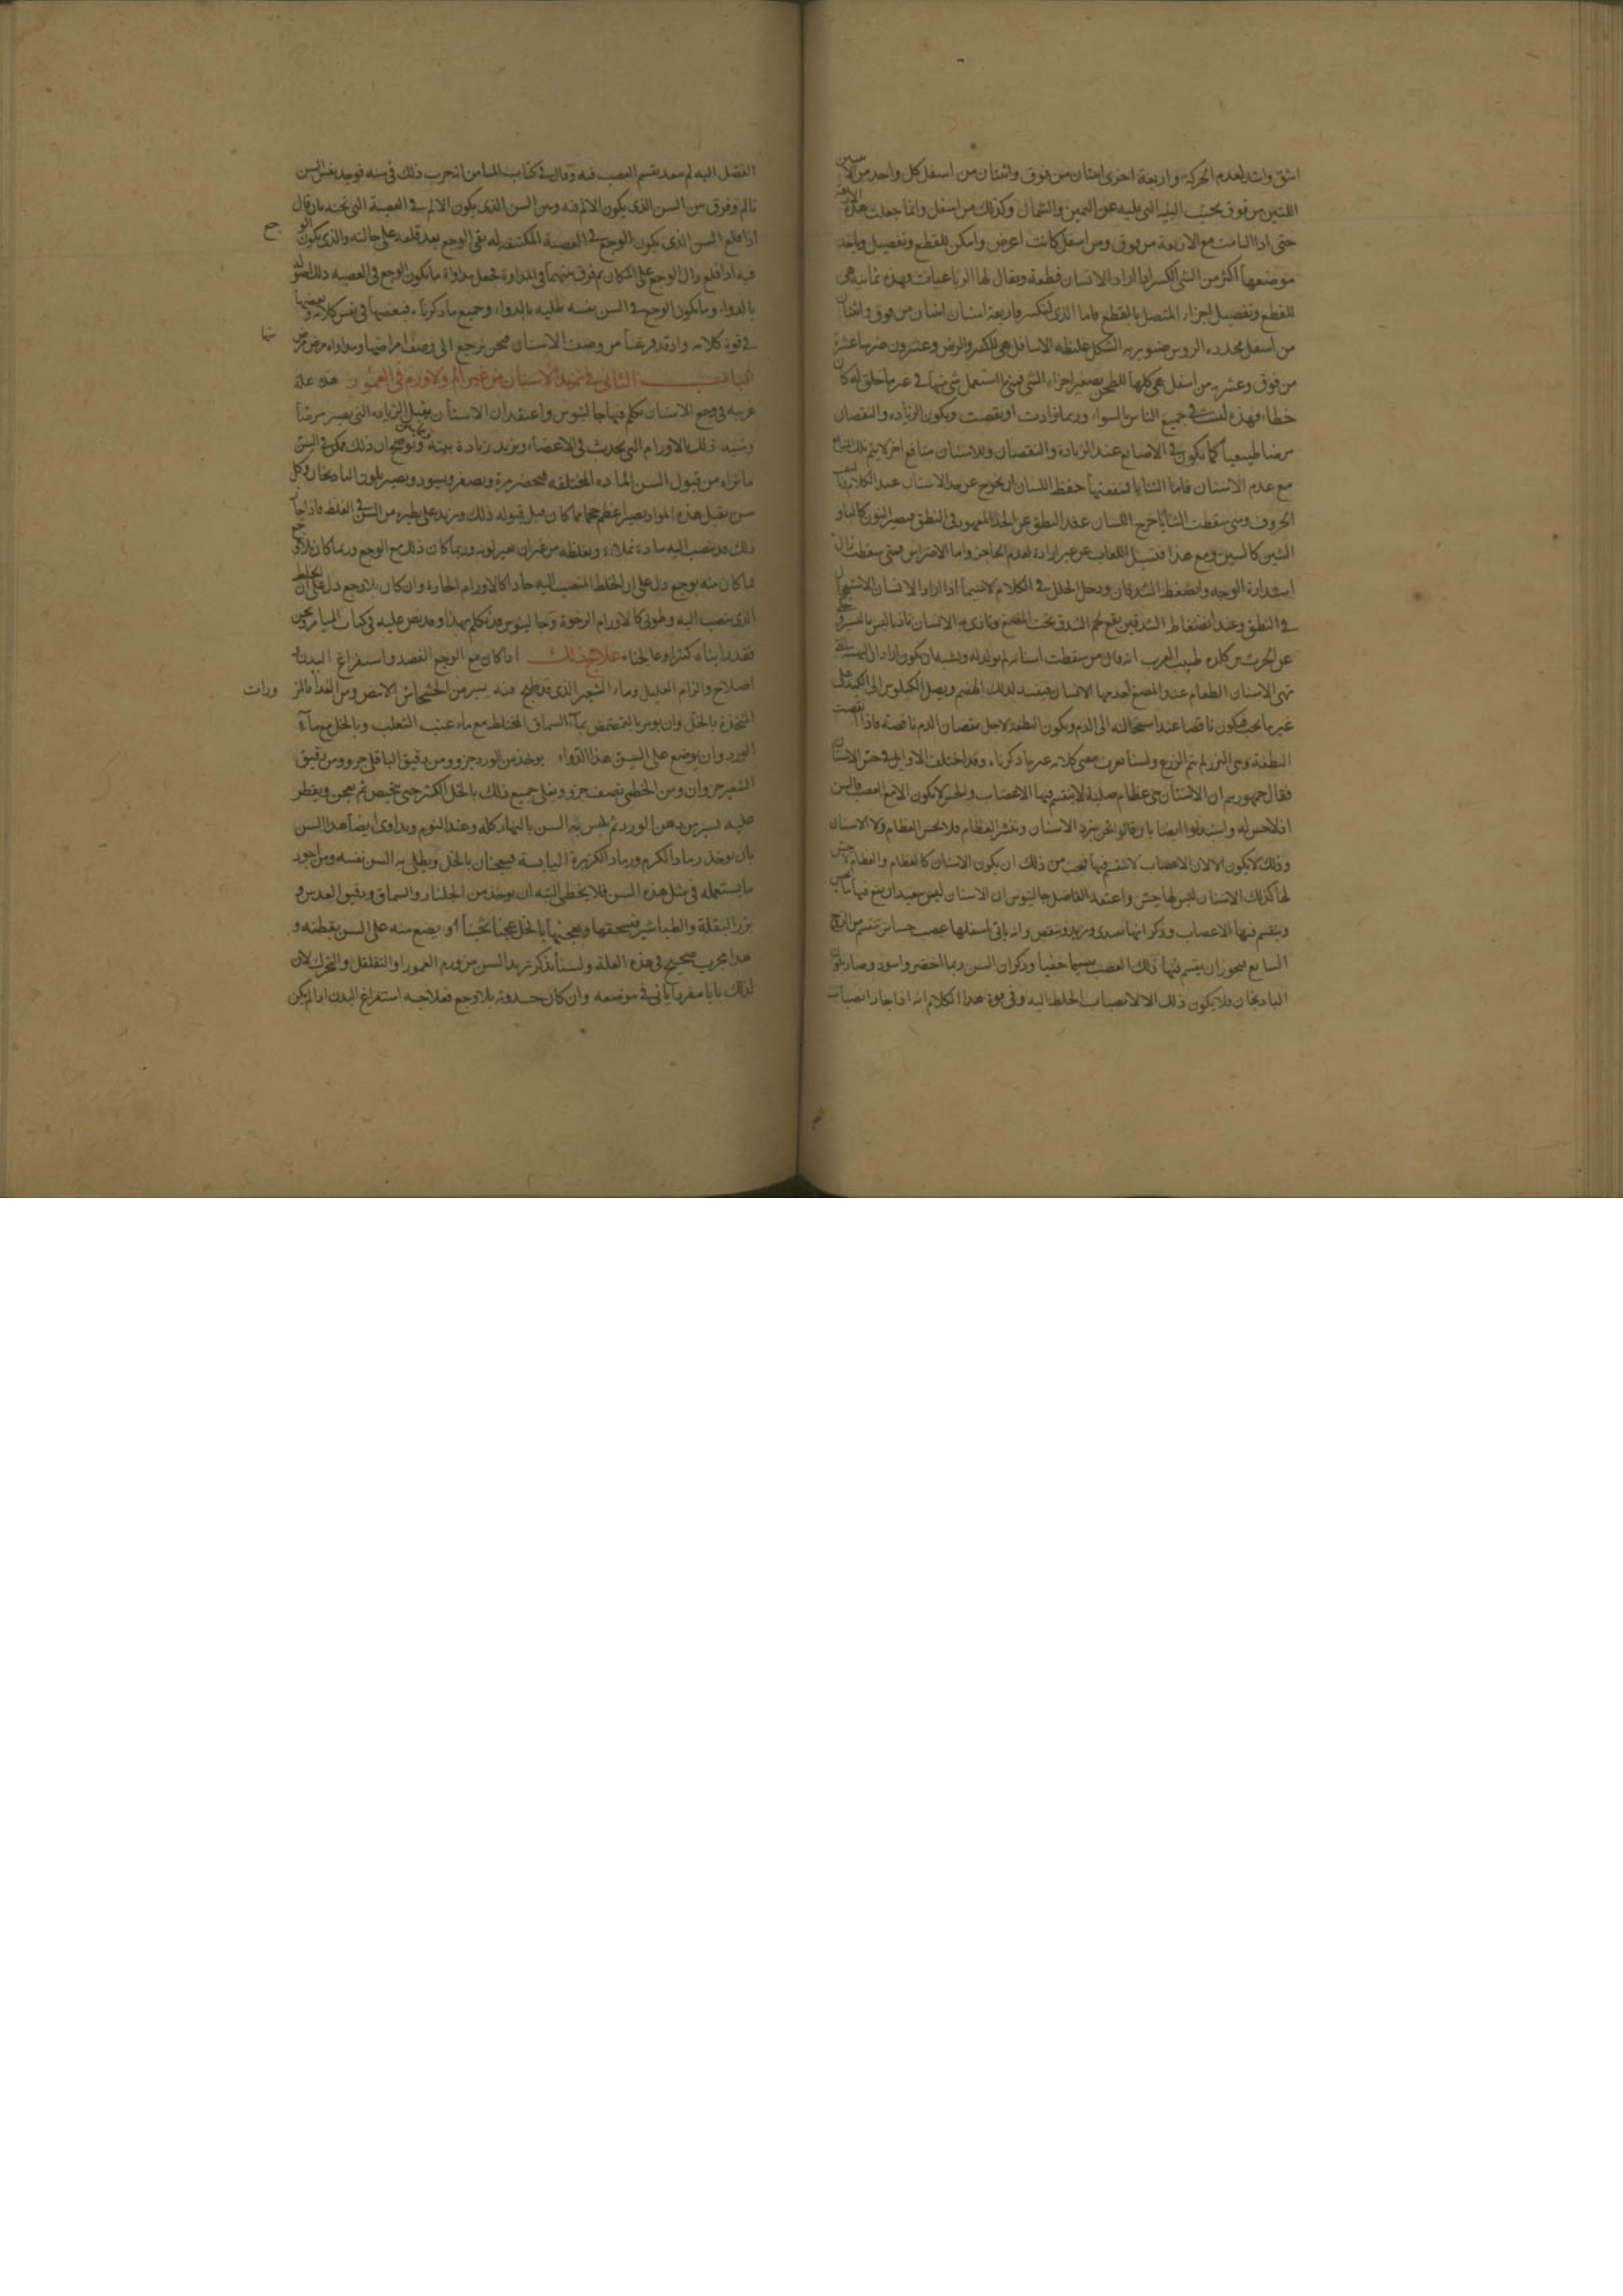 اشق واشد لعدم الحركة واربعة اخرى اثنتان من فوق واثنتان من اسفل كل واحد من
اللتين من فوق بجنب البقية التى يليه عن اليمين والشمال وكذلك من اسفل وانما جعلت هذه الاربعة
حتى اذا التامت مع الاربعة من فوق ومن اسفل كانت اعرض وامكن للقطع وتفصيل وياخذ
موضعها اكثر من الشى الكبير اذا اراد الانسان قطعه ويقال لها الرباعيات وهذه ثمانية هى
للقطع وتفصيل اجزاء المتصل بالقطع فاما الذى لتكسر فاربعة اسنان اثنتان من فوق واثنتان
من اسفل محدده الروس صنوبريه الشكل غليظه الاسافل هى للكسر والرض وعشرون ضرسا عشرة
من فوق وعشره من اسفل هى كلها للطحن بصغير اجزاء الشى فمتى استعمل شى منها فى غير ما خلق له كان
خطاء وهذه ليست فى جميع الناس بالسواء وربما زادت او نقصت ويكون الزياده والنقصان
مرضا طبيعيا كما يكون فى الاصابع عند الزيادة والنقصان وللاسنان منافع اخر لا يتم تلك المنافع
مع عدم الاسنان فاما الثنايا فمنفعتها حفظ اللسان ان يخرج عن حد الاسنان عند الكلام
الحروف ومتى سقطت الثنايا خرج اللسان عند النطق عن الحد المعهود فى النطق فيصير
الشين كالسين ومع هذا اللعاب عن غير ارادة لعدم الحاجز واما الاضراس فمتى سقطت زال
استدارة الوجه وانضغط الشدقان ودخل الخلل فى الكلام لا سيما اذا اراد الانسان
فى النطق وعند انضغاط الشدقين يقع لحم الشدق تحت المضغ وتاذى به الانسان
عن الحرث بن كلده طبيب العرب انه قال من سقطت اسنانه لم يولد له ويشبه ان يكون اراد ان
تهى الاسنان الطعام عند المضغ يعدمها الانسان فيفسد لذلك الهضم ويصل الكيلوس الى الكبد على
غير ما يجب فيكون ناقصا عند استحالته الى الدم ويكون النطفة لاجل نقصان الدم ناقصة فاذا نقصت
النطفة وهى البزر لم يتم الزرع ولسنا نعرف معنى كلامه غير ما ذكرناه وقد اختلف الاوايل فى حس الاسنان
فقال جمهورهم ان الاسنان هى عظام صلبة لا ينقسم فيها الاعصاب والحس لا يكون الا مع العصب فالسن
اذ لا حس له واستدلوا ايضا بان قالوا نحن نبرد الاسنان وننشر العظام فلا يحس العظام ولا الاسنان
وذلك لا يكون الا لان الاعصاب لا تنقسم فيها فيجب من ذلك ان يكون الاسنان كالعظام والعظام لا حس
لها كذلك الاسنان ليس لها حس واعتقد الفاضل جالينوس ان الاسنان ليس ببعيد ان يقع فيها
وينقسم فيها الاعصاب وذكر انها تغتذى وتزيد وتنقص وانه ياتى اسفلها عصب حساس تنقسم من الزوج
السابع فيجوز ان ينقسم فيها ذلك العصب تقسيما خفيا وذكر ان السن ربما اخضر واسود وصار بلون
الباذنجان فلا يكون ذلك الا لانصباب الخلط اليه وفى قوة هذا الكلام انه اذا جاز انصباب
الفضل اليه لم يبعد تقسم العصب فيه وقال فى كتاب الميامر انه جرب ذلك فى سنه فوجد نفس السن
تالم وفرق بين السن الذى يكون الالم فيه وبين السن الذى يكون الالم فى العصبة التى تحته بان قال
اذا قلع السن الذى يكون الوجع فى العصبة المكتنفه له بقى الوجع بعد قلعه على حالته والذى يكون
فيه اذا قلع زال الوجع على المكان ثم فرق بينهما فى المداواة فجعل مداواة ما يكون الوجع فى العصبه
بالدواء وما يكون الوجع فى السن نفسه طليه بالدواء وجميع ما ذكرناه فبعضها فى نفس كلامه وبعضها
فى قوة كلامه واذ قد فرغنا من وصف الاسنان فنحن نرجع الى وصف امراضها ومداواه مرض مرض
منها
الباب الثانى فى تزيد الاسنان من غير الم ولا ورم فى العمور هذه علة
غريبه فى وجع الاسنان تكلم فيها جالينوس واعتقد ان الاسنان يقبل الزياده التى يصير مرضا
وشبه ذلك بالاورام التى يحدث فى الاعضاء ويزيد زيادة بينة وتوضح ان ذلك ممكن فى السن
ما نراه من قبول السن المادة المختلفه فيخضر مرة ويصفر ويسود ويصير بلون الباذنجان وكل
سن يقبل هذه المواد يصير اعظم حجما مما كان قبل قبوله ذلك ويزيد على نظيره من السن فى الغلظ فاذا جاز
ذلك فقد ينصب اليه مادة تملاه ويغلظه من غير ان يغير لونه وربما كان ذلك مع الوجع وربما كان بلا وجع
فما كان منه بوجع دل على ان الخلط المنصب اليه حاد كالاورام الحارة وان كان بلا وجع دل على ان الخلط
الذى ينصب اليه رطوبى كالاورام الرخوة وجالينوس قد تكلم بهذا وقد نص عليه فى كتاب الميامر ونحن
فقد راينا كثيرا وعالجناه علاج ذلك اذا كان مع الوجع الفصد واستفراغ البدن
اصلاح والزام العليل وماء الشعير الذى قد طبخ منه يسير من الخشخاش الابيض ومن الغذاء المزورات
المتخذة بالخل وان يومر بالتمضمض بماء السماق المختلط مع ماء عنب الثعلب وبالخل مع ماء
الورد وان يوضع على السن هذا الدواء يوخذ من الورد جزو ومن دقيق الباقلى جزو ومن دقيق
الشعير جزوان ومن الخطمى نصف جزو ويغلى جميع ذلك بالخل الكثير حتى ثم يعجن ويقطر
عليه يسير من دهن الورد ثم يلبس به السن بالنهار كله وعند النوم ويداوى ايضا هذا السن
بان يوخذ رماد الكرم ورماد الكزبرة اليابسة فيعجنان بالخل ويطلى به السن نفسه ومن اجود
ما يستعمله فى مثل هذه السن فلا يخطى البته ان يوخذ من الجلنار والسماق ودقيق العدس و
بزر البقلة والطباشير فيسحقها ويعجنها بالخل عجنا ثخينا او يضع منه على السن بقطنه و
هذا مجرب صحيح فى هذه العلة ولسنا نذكر تزيد السن من ورم العمور او التقلقل والتحرك لان
لذلك بابا مفردا ياتى فى موضعه وان كان حدوثه بلا وجع فعلاجه استفراغ البدن اذا لم يكن